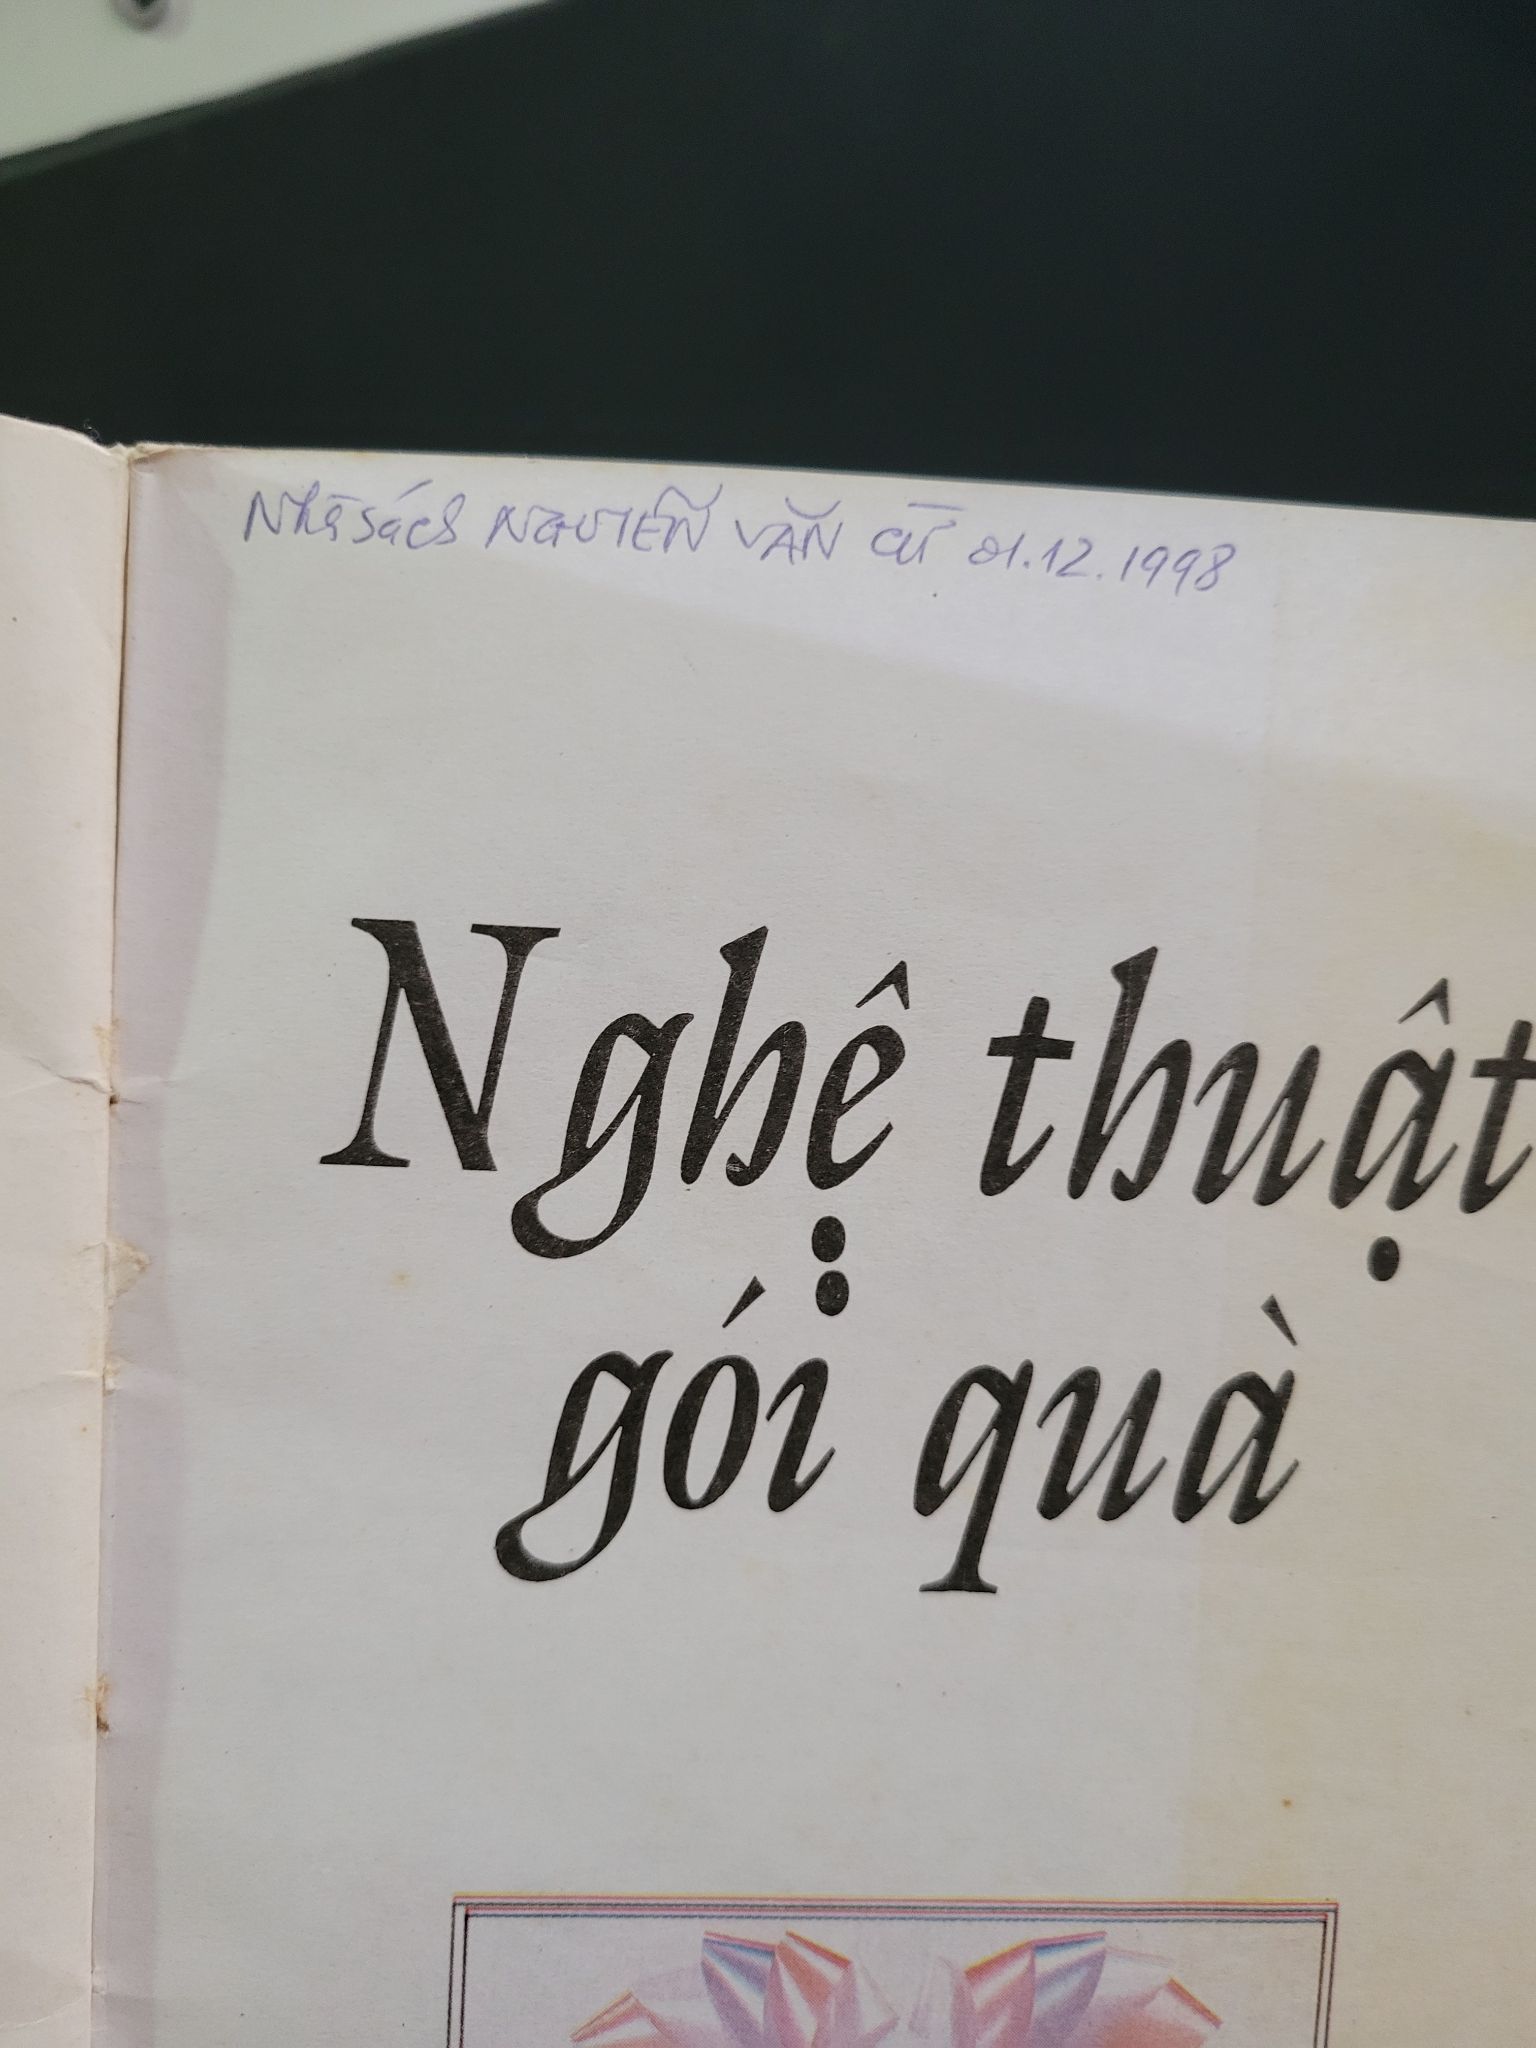 Nhà sách NGUYỄN VĂN CỪ 01.12.1998
Nghệ thuật
gói quà